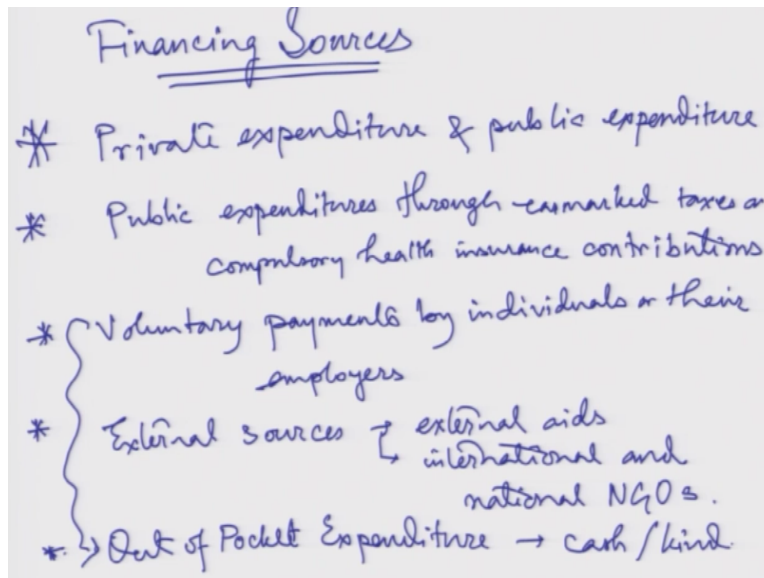 Financing Sources
* Private expenditure & public expenditure
* Public expenditures through earmarked taxes or
compulsory health insurance contributions
* Voluntary payments by individuals or their
employers
* External sources → external aids
↳ international and
national NGOs.
* → Out of Pocket Expenditure → cash/kind